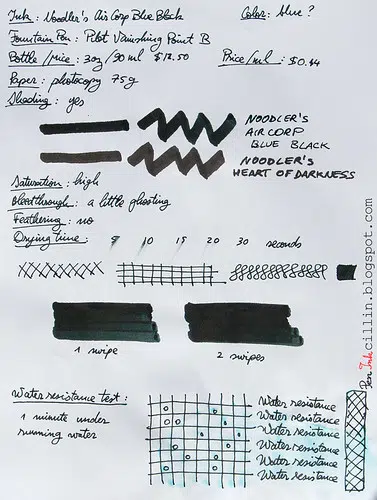 Ink: Noodler's Air Corp Blue Black Color: blue?
Fountain Pen: Pilot Vanishing Point B
Bottle / Price: 3oz / 90 ml $12.50 Price/ml: $0.14
Paper: photocopy 75g
Shading: yes
NOODLER'S
AIR CORP
BLUE BLACK
NOODLER'S
HEART OF DARKNESS
Saturation: high
Bleedthrough: a little ghosting
Feathering: no
Drying time: 5 10 15 20 30 seconds
1 swipe 2 swipes
Water resistance test:
1 minute under
running water
Water resistance
Water resistance
Water resistance
Water resistance
Water resistance
Water resistance
Pen Ink cillin.blogspot.com